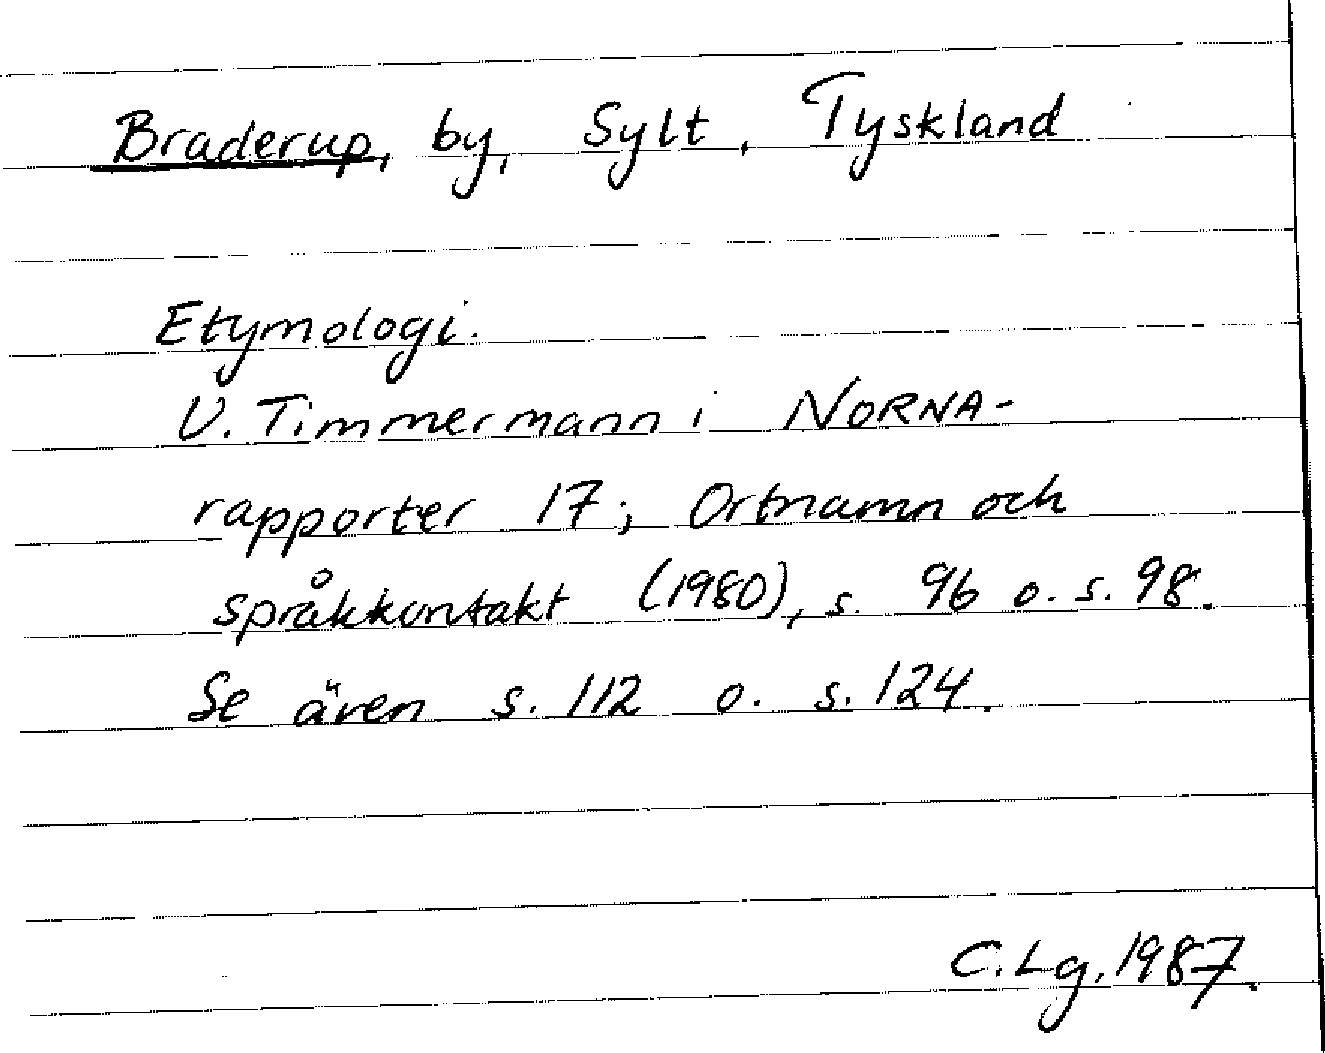 Braderup, by, Sylt, Tyskland
Etymologi.
U. Timmermann i NORNA-
rapporter 17; Ortnamn och
språkkontakt (1980), s. 96 o. s. 98.
Se även s. 112 o. s. 124.
C. Lg. 1987.